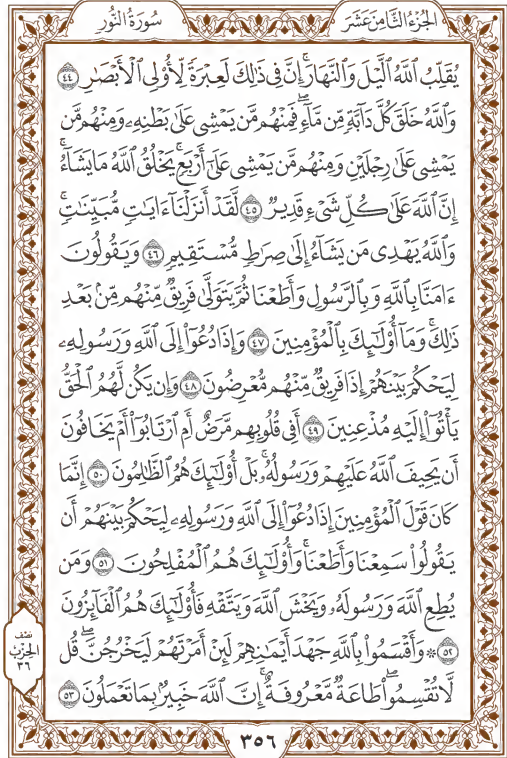 سُورَةُ النُّورِ
الجُزْءُ الثَّامِنَ عَشَرَ
يُقَلِّبُ ٱللَّهُ ٱلَّيْلَ وَٱلنَّهَارَۚ إِنَّ فِى ذَٰلِكَ لَعِبْرَةً لِّأُو۟لِى ٱلْأَبْصَٰرِ ٤٤
وَٱللَّهُ خَلَقَ كُلَّ دَآبَّةٍ مِّن مَّآءٍۖ فَمِنْهُم مَّن يَمْشِى عَلَىٰ بَطْنِهِۦ وَمِنْهُم مَّن
يَمْشِى عَلَىٰ رِجْلَيْنِ وَمِنْهُم مَّن يَمْشِى عَلَىٰٓ أَرْبَعٍۚ يَخْلُقُ ٱللَّهُ مَا يَشَآءُۚ
إِنَّ ٱللَّهَ عَلَىٰ كُلِّ شَىْءٍ قَدِيرٌ ٤٥ لَّقَدْ أَنزَلْنَآ ءَايَٰتٍ مُّبَيِّنَٰتٍۚ
وَٱللَّهُ يَهْدِى مَن يَشَآءُ إِلَىٰ صِرَٰطٍ مُّسْتَقِيمٍ ٤٦ وَيَقُولُونَ
ءَامَنَّا بِٱللَّهِ وَبِٱلرَّسُولِ وَأَطَعْنَا ثُمَّ يَتَوَلَّىٰ فَرِيقٌ مِّنْهُم مِّنۢ بَعْدِ
ذَٰلِكَۚ وَمَآ أُو۟لَٰٓئِكَ بِٱلْمُؤْمِنِينَ ٤٧ وَإِذَا دُعُوٓا۟ إِلَى ٱللَّهِ وَرَسُولِهِۦ
لِيَحْكُمَ بَيْنَهُمْ إِذَا فَرِيقٌ مِّنْهُم مُّعْرِضُونَ ٤٨ وَإِن يَكُن لَّهُمُ ٱلْحَقُّ
يَأْتُوٓا۟ إِلَيْهِ مُذْعِنِينَ ٤٩ أَفِى قُلُوبِهِم مَّرَضٌ أَمِ ٱرْتَابُوٓا۟ أَمْ يَخَافُونَ
أَن يَحِيفَ ٱللَّهُ عَلَيْهِمْ وَرَسُولُهُۥۚ بَلْ أُو۟لَٰٓئِكَ هُمُ ٱلظَّٰلِمُونَ ٥٠ إِنَّمَا
كَانَ قَوْلَ ٱلْمُؤْمِنِينَ إِذَا دُعُوٓا۟ إِلَى ٱللَّهِ وَرَسُولِهِۦ لِيَحْكُمَ بَيْنَهُمْ أَن
يَقُولُوا۟ سَمِعْنَا وَأَطَعْنَاۚ وَأُو۟لَٰٓئِكَ هُمُ ٱلْمُفْلِحُونَ ٥١ وَمَن
يُطِعِ ٱللَّهَ وَرَسُولَهُۥ وَيَخْشَ ٱللَّهَ وَيَتَّقْهِ فَأُو۟لَٰٓئِكَ هُمُ ٱلْفَآئِزُونَ
٥٢ ۞ وَأَقْسَمُوا۟ بِٱللَّهِ جَهْدَ أَيْمَٰنِهِمْ لَئِنْ أَمَرْتَهُمْ لَيَخْرُجُنَّۖ قُل
لَّا تُقْسِمُوا۟ۖ طَاعَةٌ مَّعْرُوفَةٌۚ إِنَّ ٱللَّهَ خَبِيرٌۢ بِمَا تَعْمَلُونَ ٥٣
نصف
الحزب
٣٦
٣٥٦